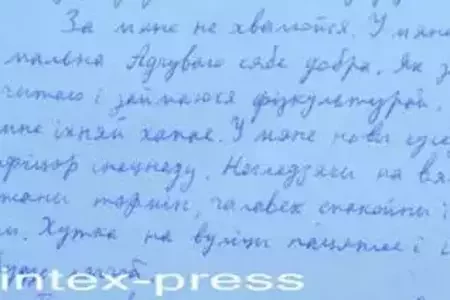 За мяне не хвалюйся. У мяне
мальна Адчуваю сябе добра. Як з
читаю і займаюся фізкультурой.
мне іхняй хапае. У мяне новы
афіцэр спецназу. Нягледзячы на вя
тэрмін, чалавек спакойны і
Хутка на вуліцы пацяплее і
intex-press